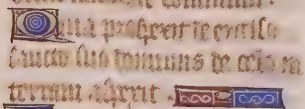 Quia prospexit de excelso
sancto suo dominus de celo in
terram aspexit